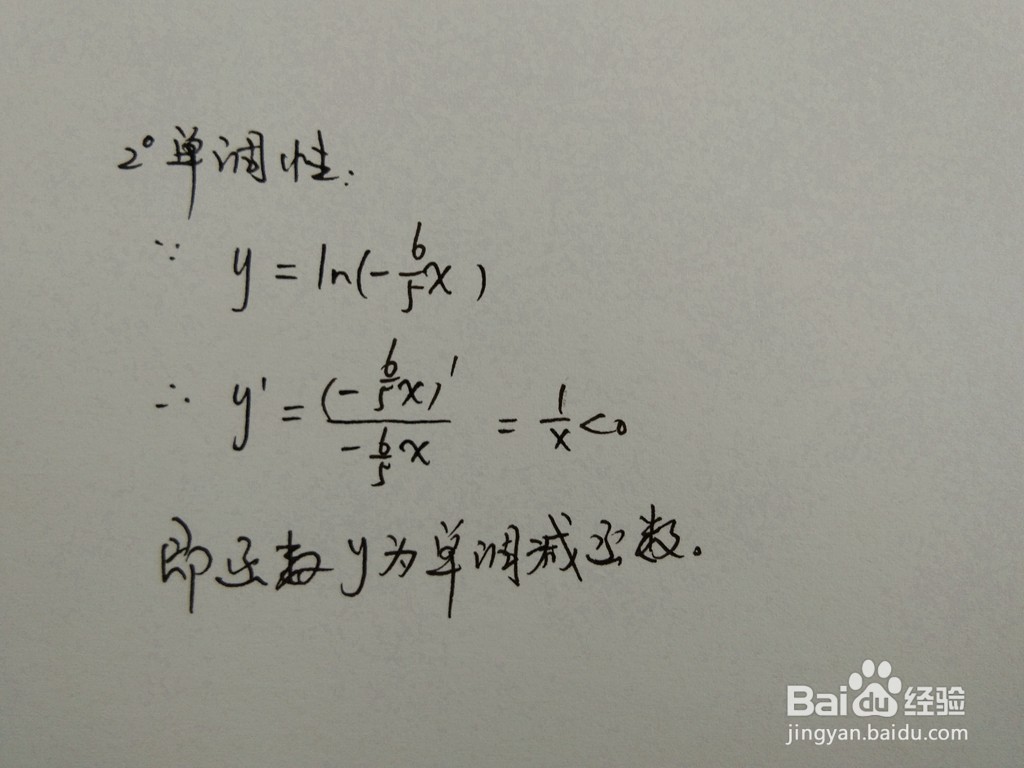 2° 单调性:
∵ y = ln(-6/5 x)
∴ y' = (-6/5 x)' / (-6/5 x) = 1/x <0
即函数y为单调减函数。
Bai du 经验
jingyan.baidu.com